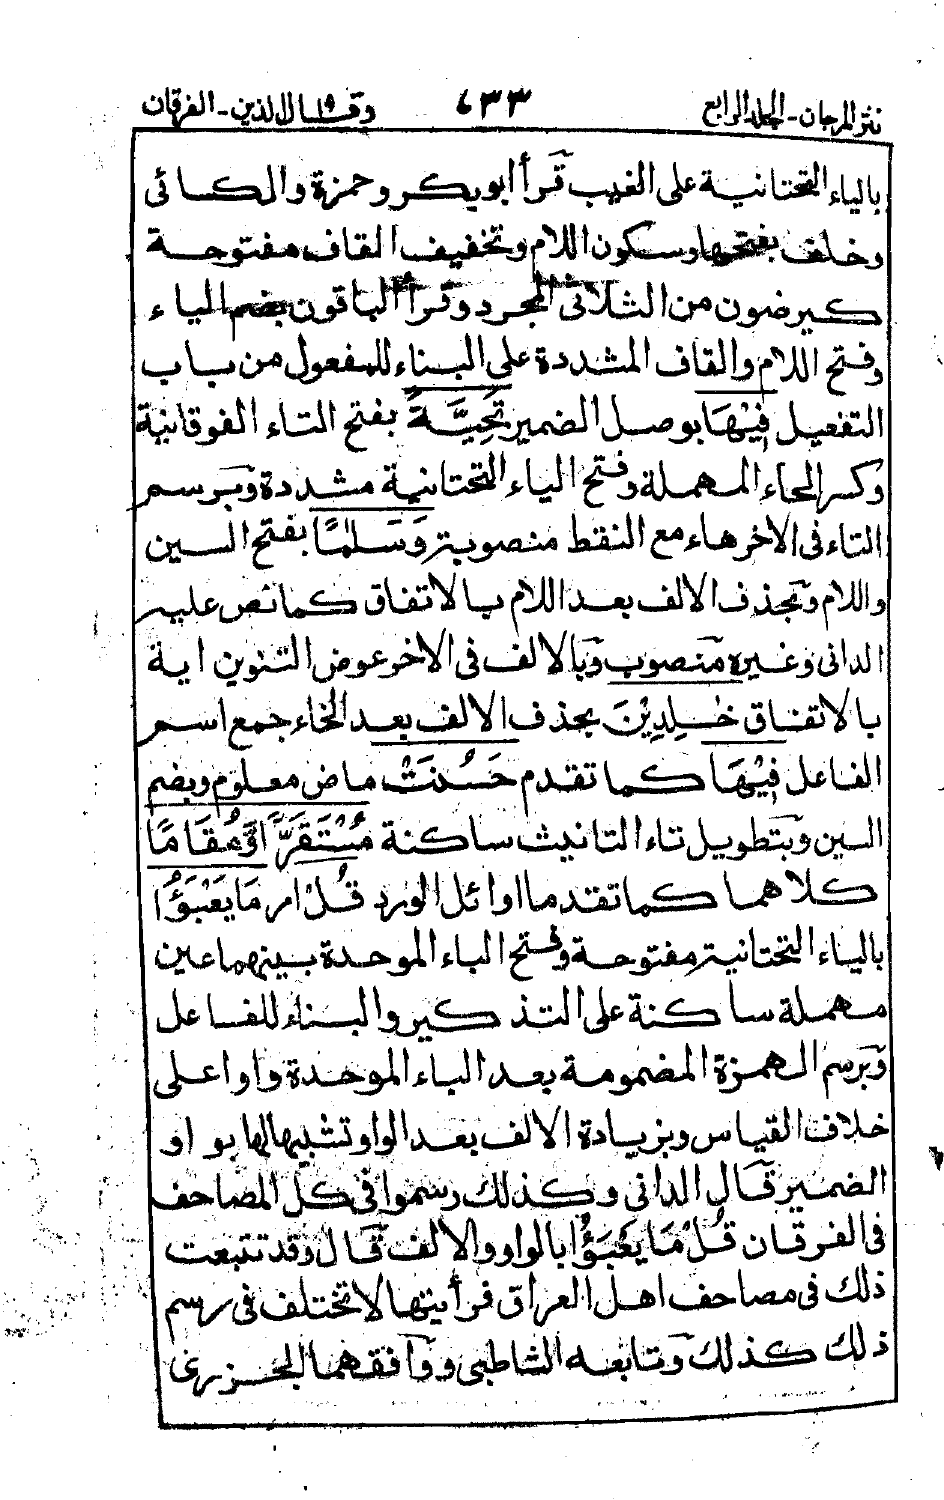 نثر المرجان - الجلد الرابع ٦٣٣ وقال الذين ١٩ - الفرقان
بالياء التحتانية على الغيب قرأ أبو بكر وحمزة والكسائى
وخلف بفتحها وسكون اللام وتخفيف القاف مفتوحة
كيرضون من الثلاثى المجرد وقرأ الباقون بضم الياء
وفتح اللام والقاف المشددة على البناء للمفعول من باب
التفعيل فِيْهَا بوصل الضمير تَحِيَّةً بفتح التاء الفوقانية
وكسر الحاء المهملة وفتح الياء التحتانية مشددة وبرسم
التاء فى الاخر هاء مع النقط منصوبة وَسَلٰمًا بفتح السين
واللام وبحذف الالف بعد اللام بالاتفاق كما نص عليه
الدانى وغيره منصوب وبالالف فى الاخر عوض التنوين اية
بالاتفاق خٰلِدِيْنَ بحذف الالف بعد الخاء جمع اسم
الفاعل فِيْهَا كما تقدم حَسُنَتْ ماض معلوم وبضم
السين وبتطويل تاء التانيث ساكنة مُسْتَقَرًّا وَّمُقَامًا
كلاهما كما تقدما اوائل الورد قُلْ امر مَا يَعْبَؤُا
بالياء التحتانية مفتوحة وفتح الباء الموحدة بينهما عين
مهملة ساكنة على التذكير والبناء للفاعل
وبرسم الهمزة المضمومة بعد الباء الموحدة واوا على
خلاف القياس وبزيادة الالف بعد الواو تشبيها لها بواو
الضمير قال الدانى وكذلك رسموا فى كل المصاحف
فى الفرقان قُلْ مَا يَعْبَؤُا بالواو والالف قال وقد تتبعت
ذلك فى مصاحف اهل العراق فرأيتها لا تختلف فى رسم
ذلك كذلك وتابعه الشاطبى ووافقهما الجزرى